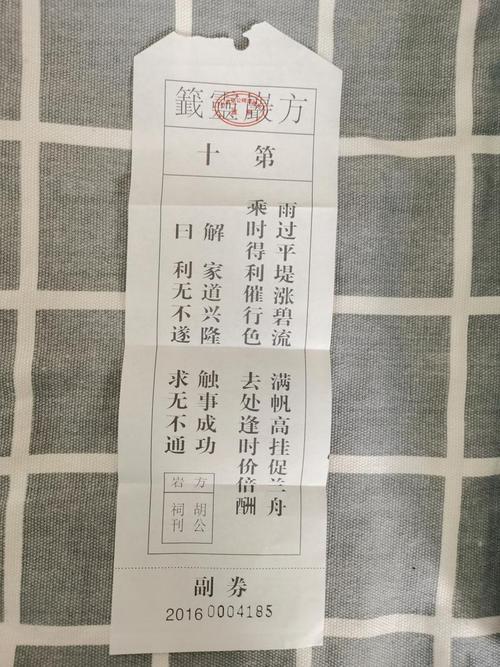 方巖靈籤
第十
雨过平堤涨碧流 满帆高挂促兰舟
乘时得利催行色 去处逢时价倍酬
解 家道兴隆 触事成功
曰 利无不遂 求无不通
方岩
胡公祠刊
副券
2016 0004185